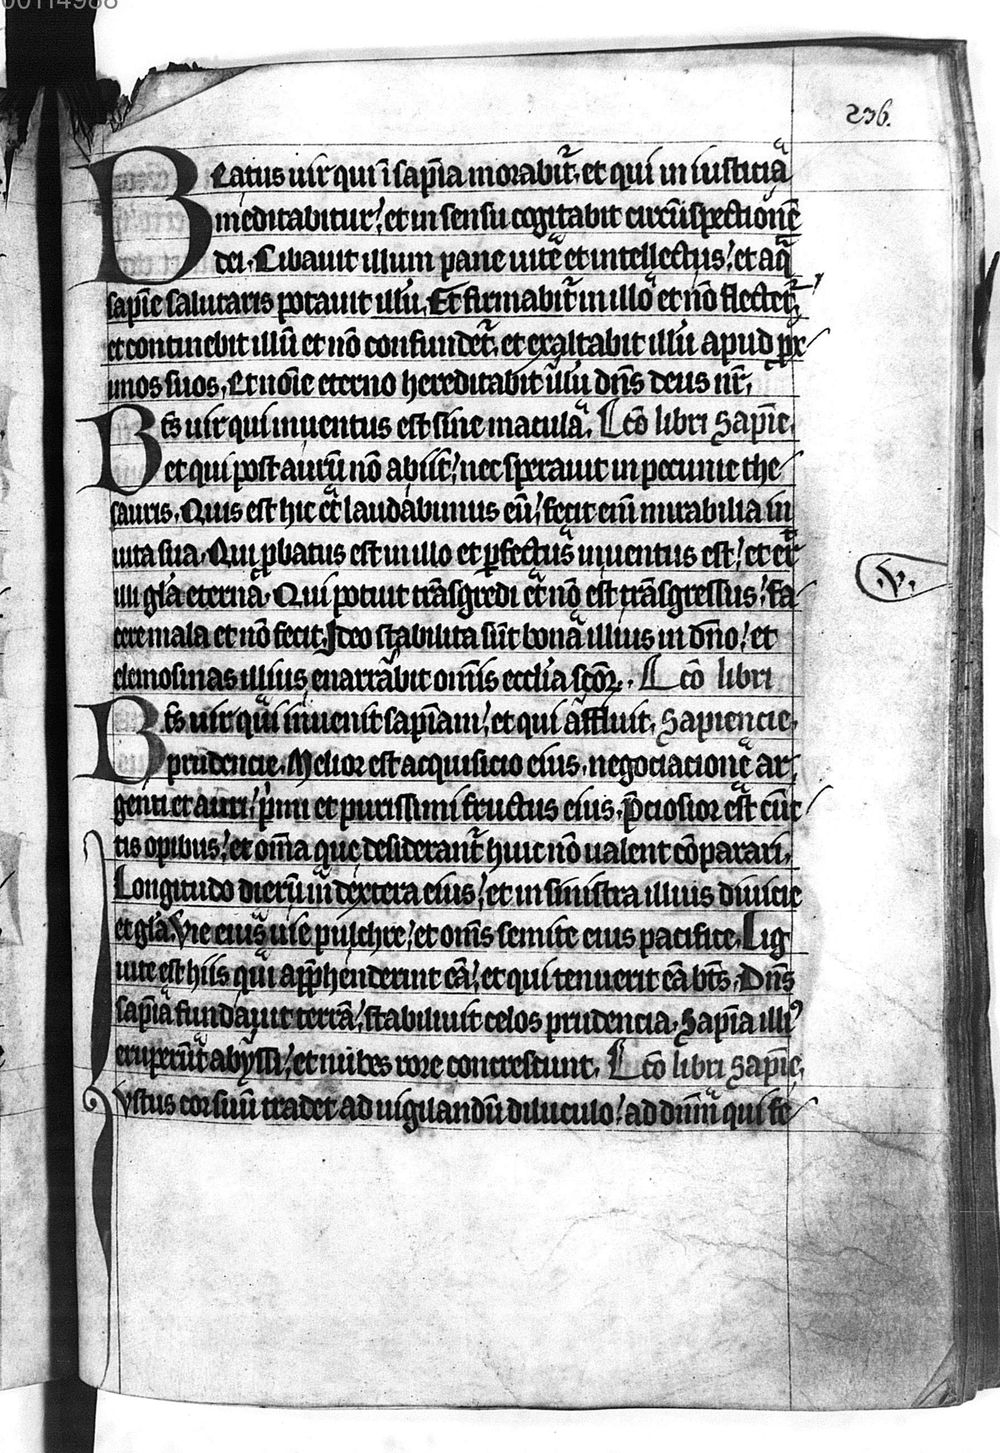 00114988
236.
Beatus uir qui ī sap̄ia morabit᷑, et qui in iusticia
meditabitur, et in sensu cogitabit circūspectionē
dei. Cibauit illum pane uite et intellectus, et aq̄
sapīe salutaris potauit illū, Et firmabit᷑ in illo et nō flectet᷑,
et continebit illū et nō confundet᷑, et exaltabit illū apud prox
imos suos, Et noīe eterno hereditabit illū dn̄s deus nr̄,
Bt̄s uir qui inuentus est sine macula, Lc̄o libri Sapīe,
et qui post aurū nō abiit, nec sperauit in pecunie the
sauris. Quis est hic et laudabimus eū, fecit eīm mirabilia in
uita sua. Qui ꝓbatus est in illo et ꝑfectus inuentus est, et erit
illi gl̄a eterna. Qui potuit trāsgredi et nō est trāsgressus, fa
cere mala et nō fecit, Ideo stabilita sūt bona illius in dn̄o, et
elemosinas illius enarrabit om̄is eccl̄ia sc̄oꝝ. Lc̄o libri
Bt̄s uir qui inuenit sapīam, et qui affluit, Sapiencie,
prudencie. Melior est acquisicio eius, negociacione ar
genti et auri, pͥmi et purissimi fructus eius, p̄ciosior est cūc
tis opibus, et om̄a que desiderant᷑ huic nō ualent cōparari,
Longitudo dierū in dextera eius, et in sinistra illius diuicie
et gl̄a. Vie eius uie pulchre, et om̄s semite eius pacifice, Lig
uite est hiis qui app̄henderint eā, et qui tenuerit eā bt̄s, Dn̄s
sapīa fundauit terrā, stabiliuit celos prudencia, Sapīa illiꝰ
eruperūt abyssi, et nubes rore concrescunt, Lc̄o libri Sapīe,
Iustus cor suū tradet ad uigilandū diluculo, ad dn̄m qui fe
.V.